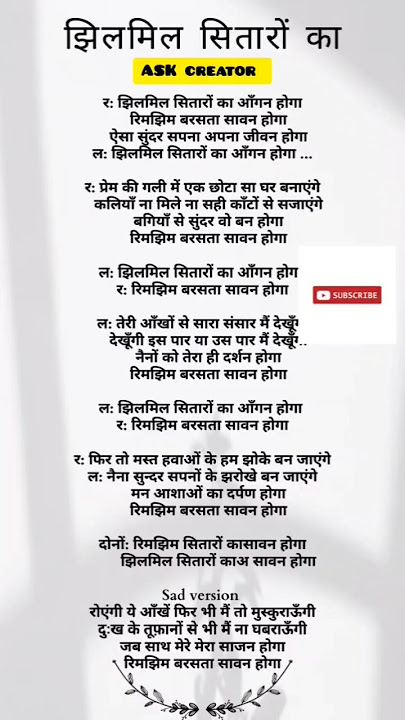 झिलमिल सितारों का
ASK CREATOR
र: झिलमिल सितारों का आँगन होगा
रिमझिम बरसता सावन होगा
ऐसा सुंदर सपना अपना जीवन होगा
ल: झिलमिल सितारों का आँगन होगा ...
र: प्रेम की गली में एक छोटा सा घर बनाएंगे
कलियाँ ना मिले ना सही काँटों से सजाएंगे
बगियाँ से सुंदर वो बन होगा
रिमझिम बरसता सावन होगा
ल: झिलमिल सितारों का आँगन होगा
र: रिमझिम बरसता सावन होगा
SUBSCRIBE
ल: तेरी आँखों से सारा संसार मैं देखूँगी
देखूँगी इस पार या उस पार मैं देखूँ..
नैनों को तेरा ही दर्शन होगा
रिमझिम बरसता सावन होगा
ल: झिलमिल सितारों का आँगन होगा
र: रिमझिम बरसता सावन होगा
र: फिर तो मस्त हवाओं के हम झोके बन जाएंगे
ल: नैना सुन्दर सपनों के झरोखे बन जाएंगे
मन आशाओं का दर्पण होगा
रिमझिम बरसता सावन होगा
दोनों: रिमझिम सितारों कासावन होगा
झिलमिल सितारों काअ सावन होगा
Sad version
रोएंगी ये आँखें फिर भी मैं तो मुस्कुराऊँगी
दुःख के तूफ़ानों से भी मैं ना घबराऊँगी
जब साथ मेरे मेरा साजन होगा
रिमझिम बरसता सावन होगा